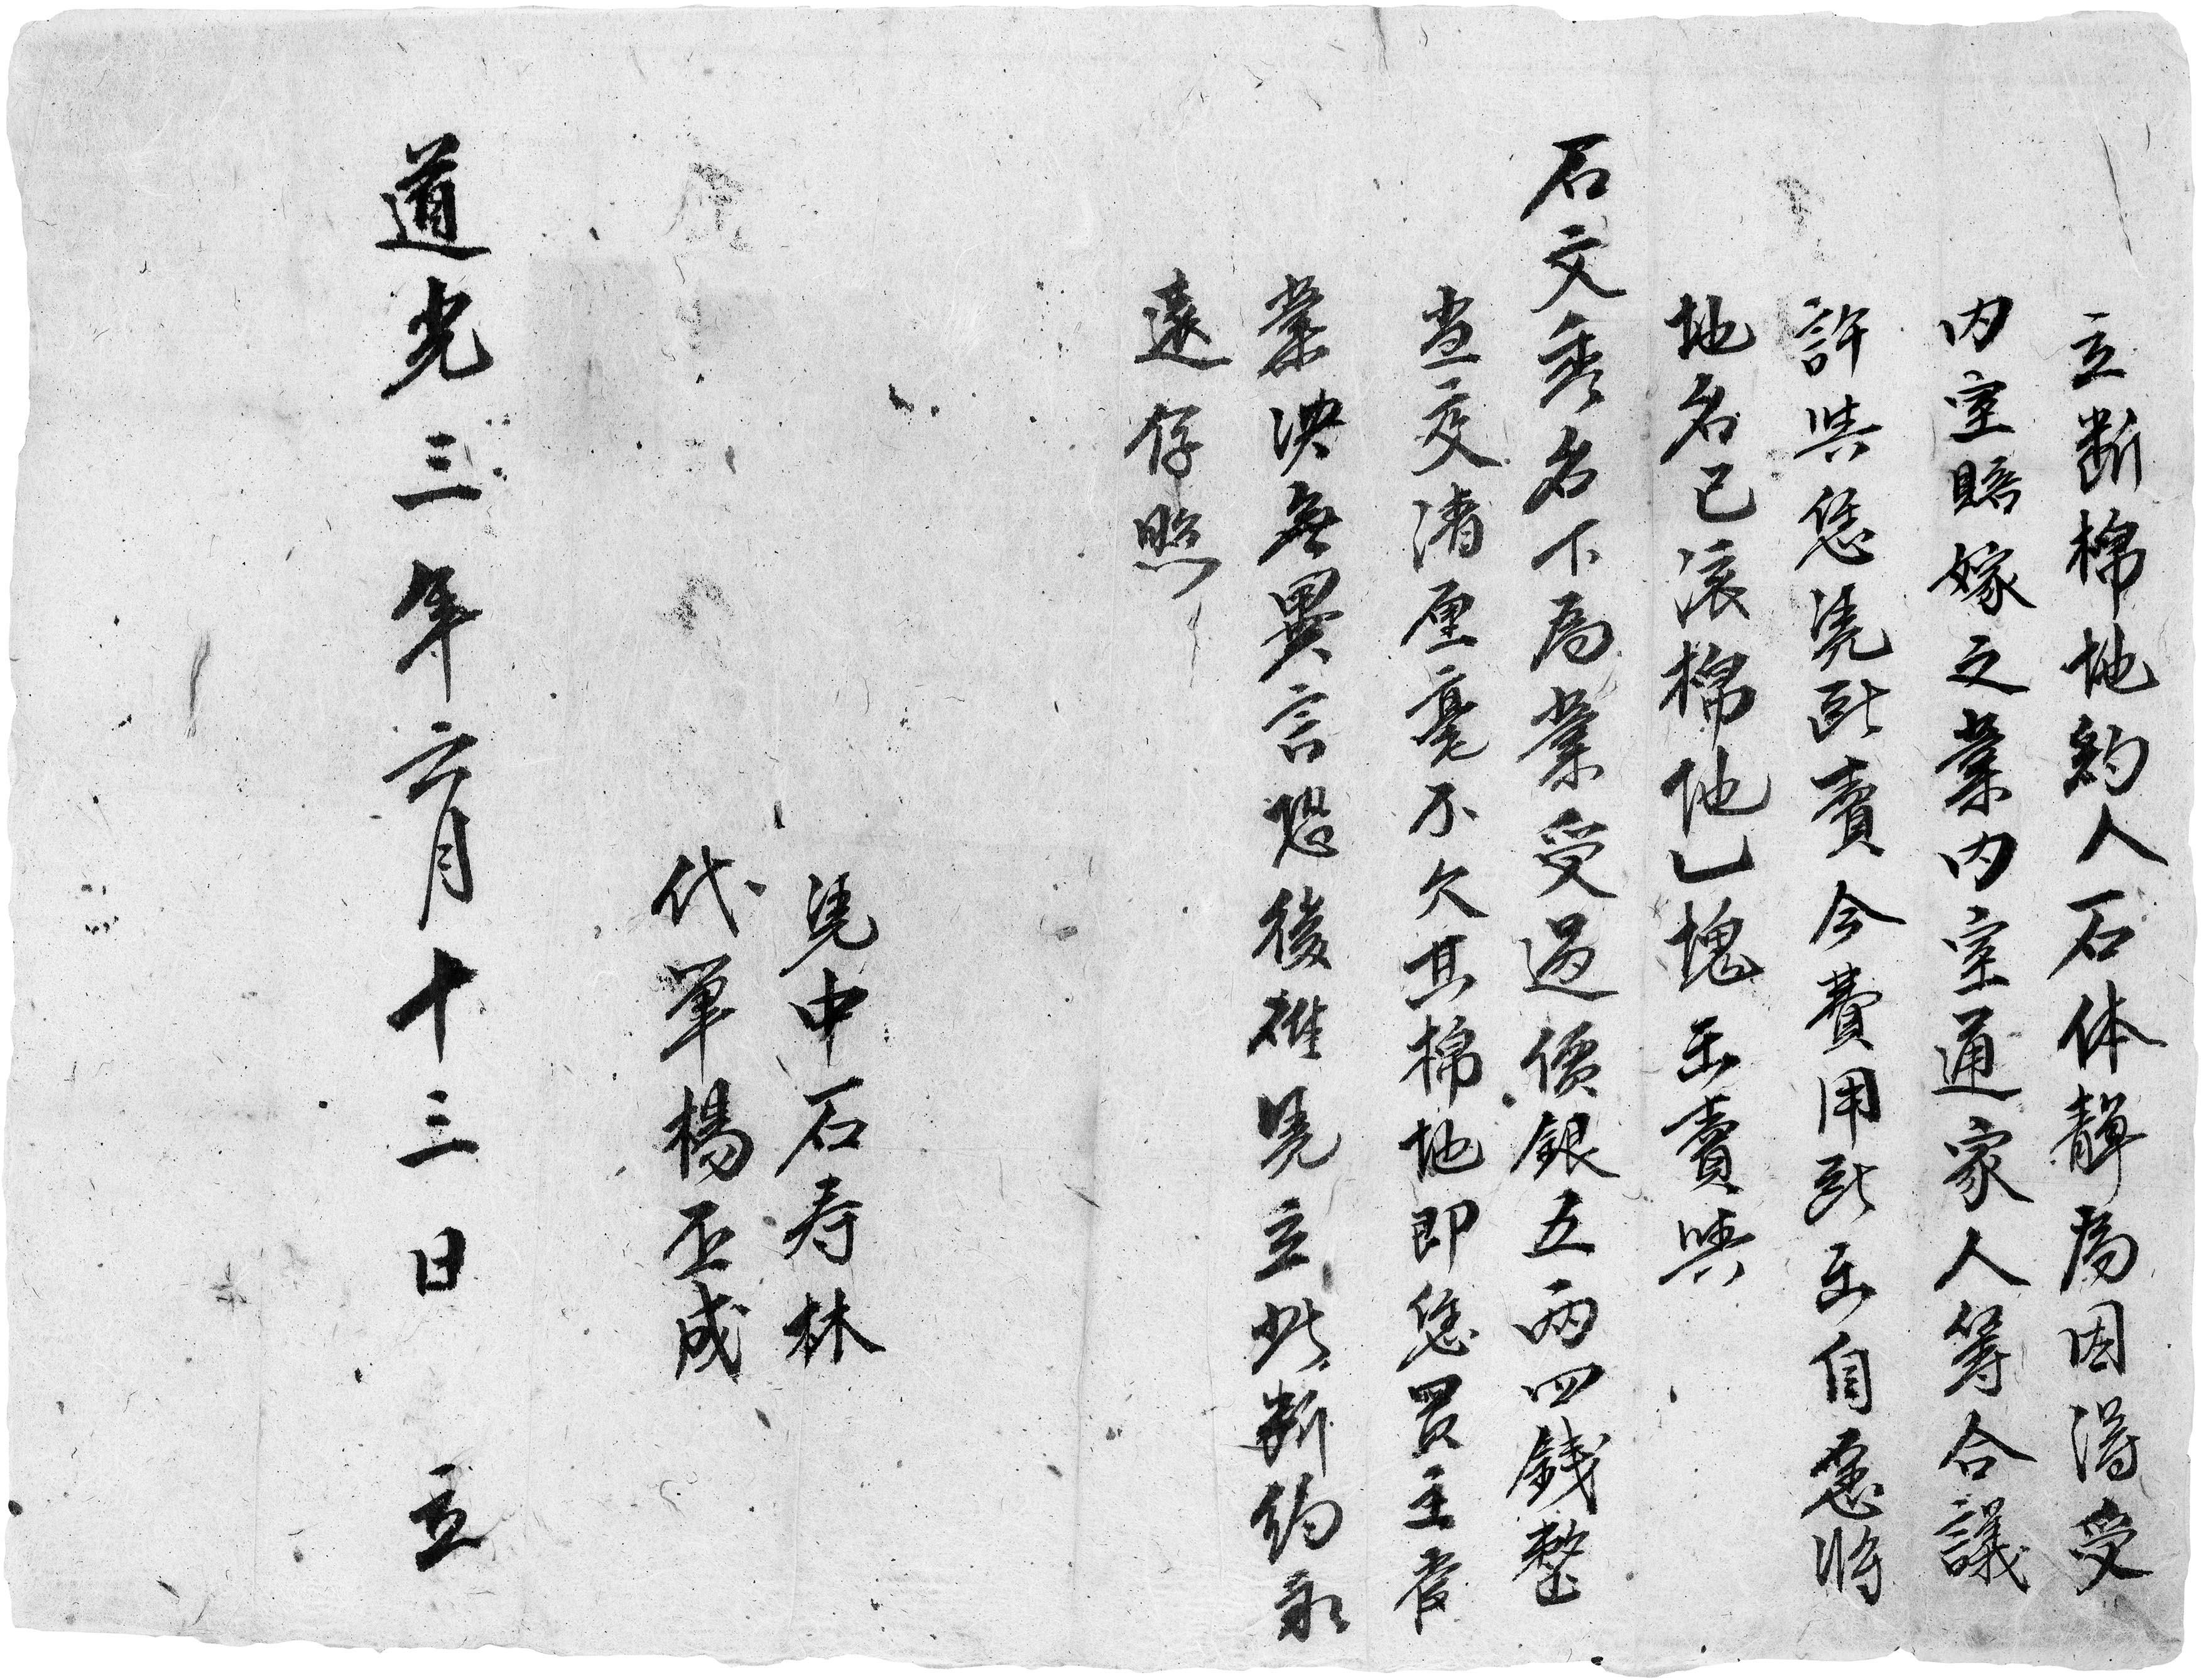 立断棉地約人石体靜為因得受
内室賠嫁之業内室通家人等合議
許與恁凴斷賣今費用斷出自愿將
地名己滚棉地乚塊出賣與
石文秀名下為業受過價銀五両四錢整
當交清厘毫不欠其棉地即恁買主管
業決無異言恐後難凴立此断約永
遠存照
凴中石寿林
代筆楊丕成
道光三年六月十三日 立